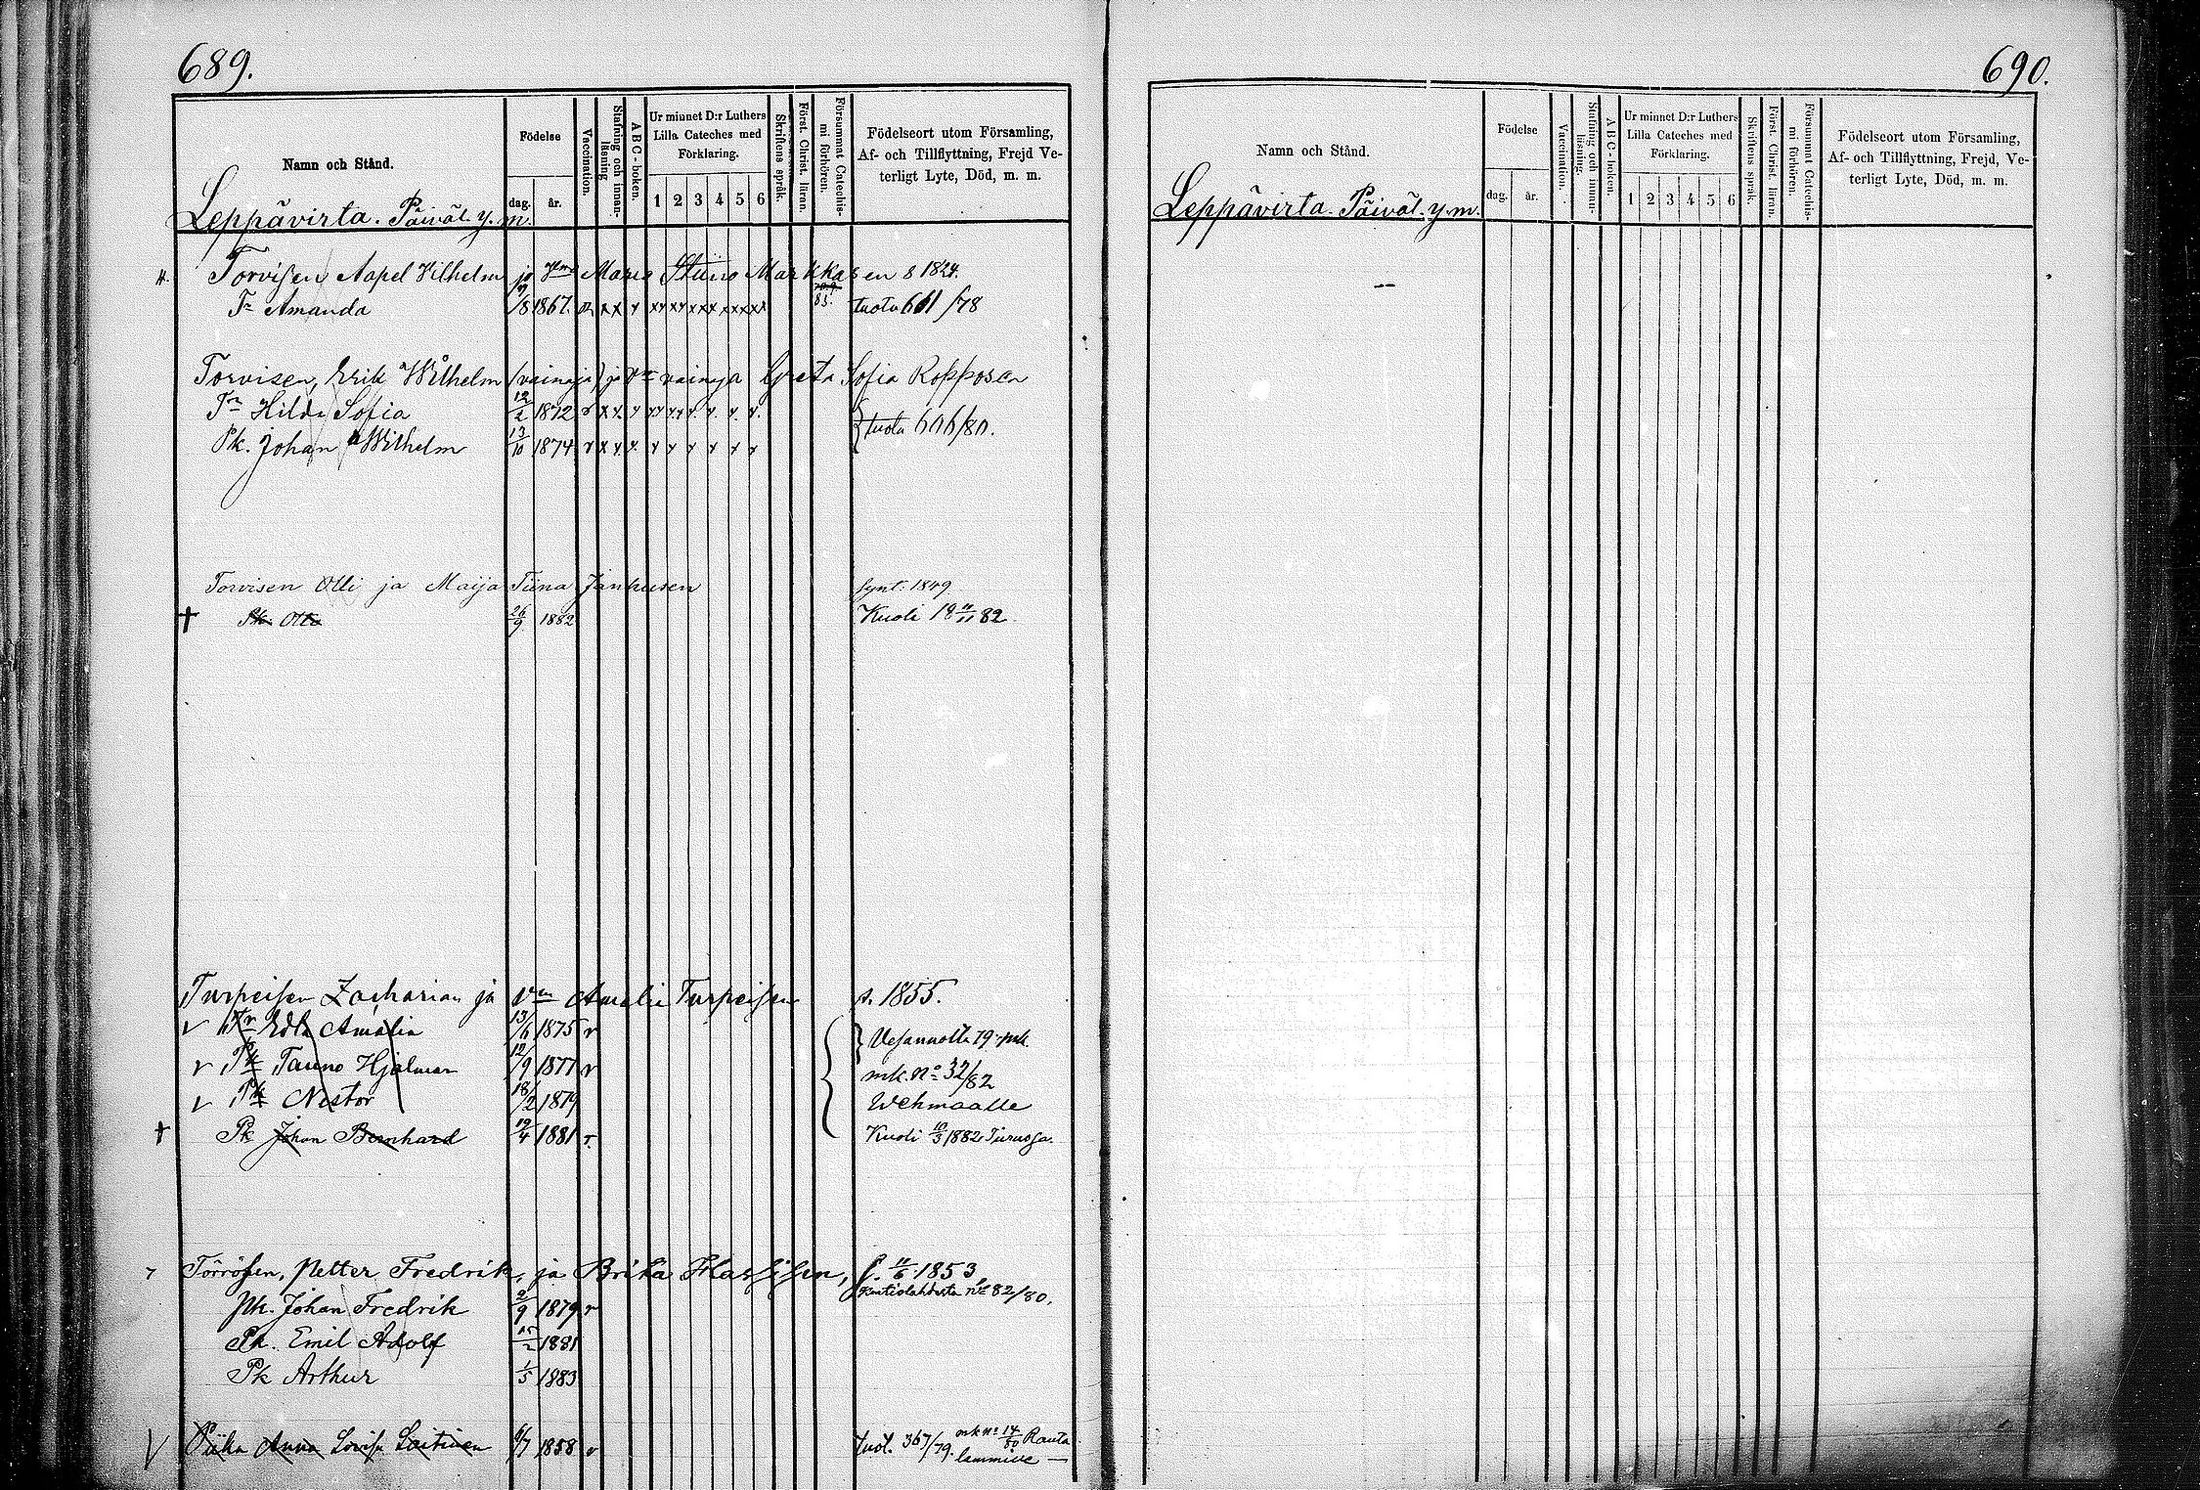 689.
Namn och Stånd.
Födelse
dag.
år.
Vaccination.
Stafning och innan-läsning
A B C-boken.
Ur minnet D:r Luthers Lilla Cateches med Förklaring.
1 2 3 4 5 6
Skriftens språk.
Först. Christ. läran.
Försummat Catechis-mi förhören.
Födelseort utom Församling,
Af- och Tillflyttning, Frejd Ve-
terligt Lyte, Död, m. m.
Leppävirta. Päiväl. y. m.
Torvisen Aapel Vilhelm ja Maria Stiina Markkasen s 1824.
Tr Amanda /8 1867. tuotu 661/78
Torvisen, Erik Wilhelm (vainaja) ja Vm vainaja Greta Sofia Ropposen
Tr Hilda Sofia 12/2 1872 tuotu 606/80.
Pk. Johan Wilhelm 13/10 1874
Torvisen Olli ja Maija Tiina Janhusen synt. 1849
† Pk. Otto 26/9 1882 Kuoli 18 11/11 82.
Turpeisen Zacharian ja Vm Amalia Turpeisen s. 1855.
v Tr Edla Amalia 13/6 1875 v Vesannolta 79. mk.
v Pk Tauno Hjalmar 12/9 1877 v mk. No 32/82
v Pk Nestor 18/2 1879 Wehmaalle
† Pk Johan Bernhard 19/4 1881 Kuoli 10/3 1882 Turussa.
Törrösen, Petter Fredrik, ja Brita Hassisen, s. 11/6 1853
Kontiolahdesta no 82/80.
Pk. Johan Fredrik 2/9 1879 v
Pk. Emil Adolf 15/2 1881
Pk Arthur 1/5 1883
Piika Anna Lovisa Laitinen 6/7 1858 v tuot. 367/79. mk no 14/80 Rauta
lammille —
690.
Namn och Stånd.
Födelse
dag.
år.
Vaccination.
Stafning och innan-läsning.
A B C-boken.
Ur minnet D:r Luthers Lilla Cateches med Förklaring.
1 2 3 4 5 6
Skriftens språk.
Först. Christ. läran.
Försummat Catechis-mi förhören.
Födelseort utom Församling,
Af- och Tillflyttning, Frejd, Ve-
terligt Lyte, Död, m. m.
Leppävirta. Päiväl. y. m.